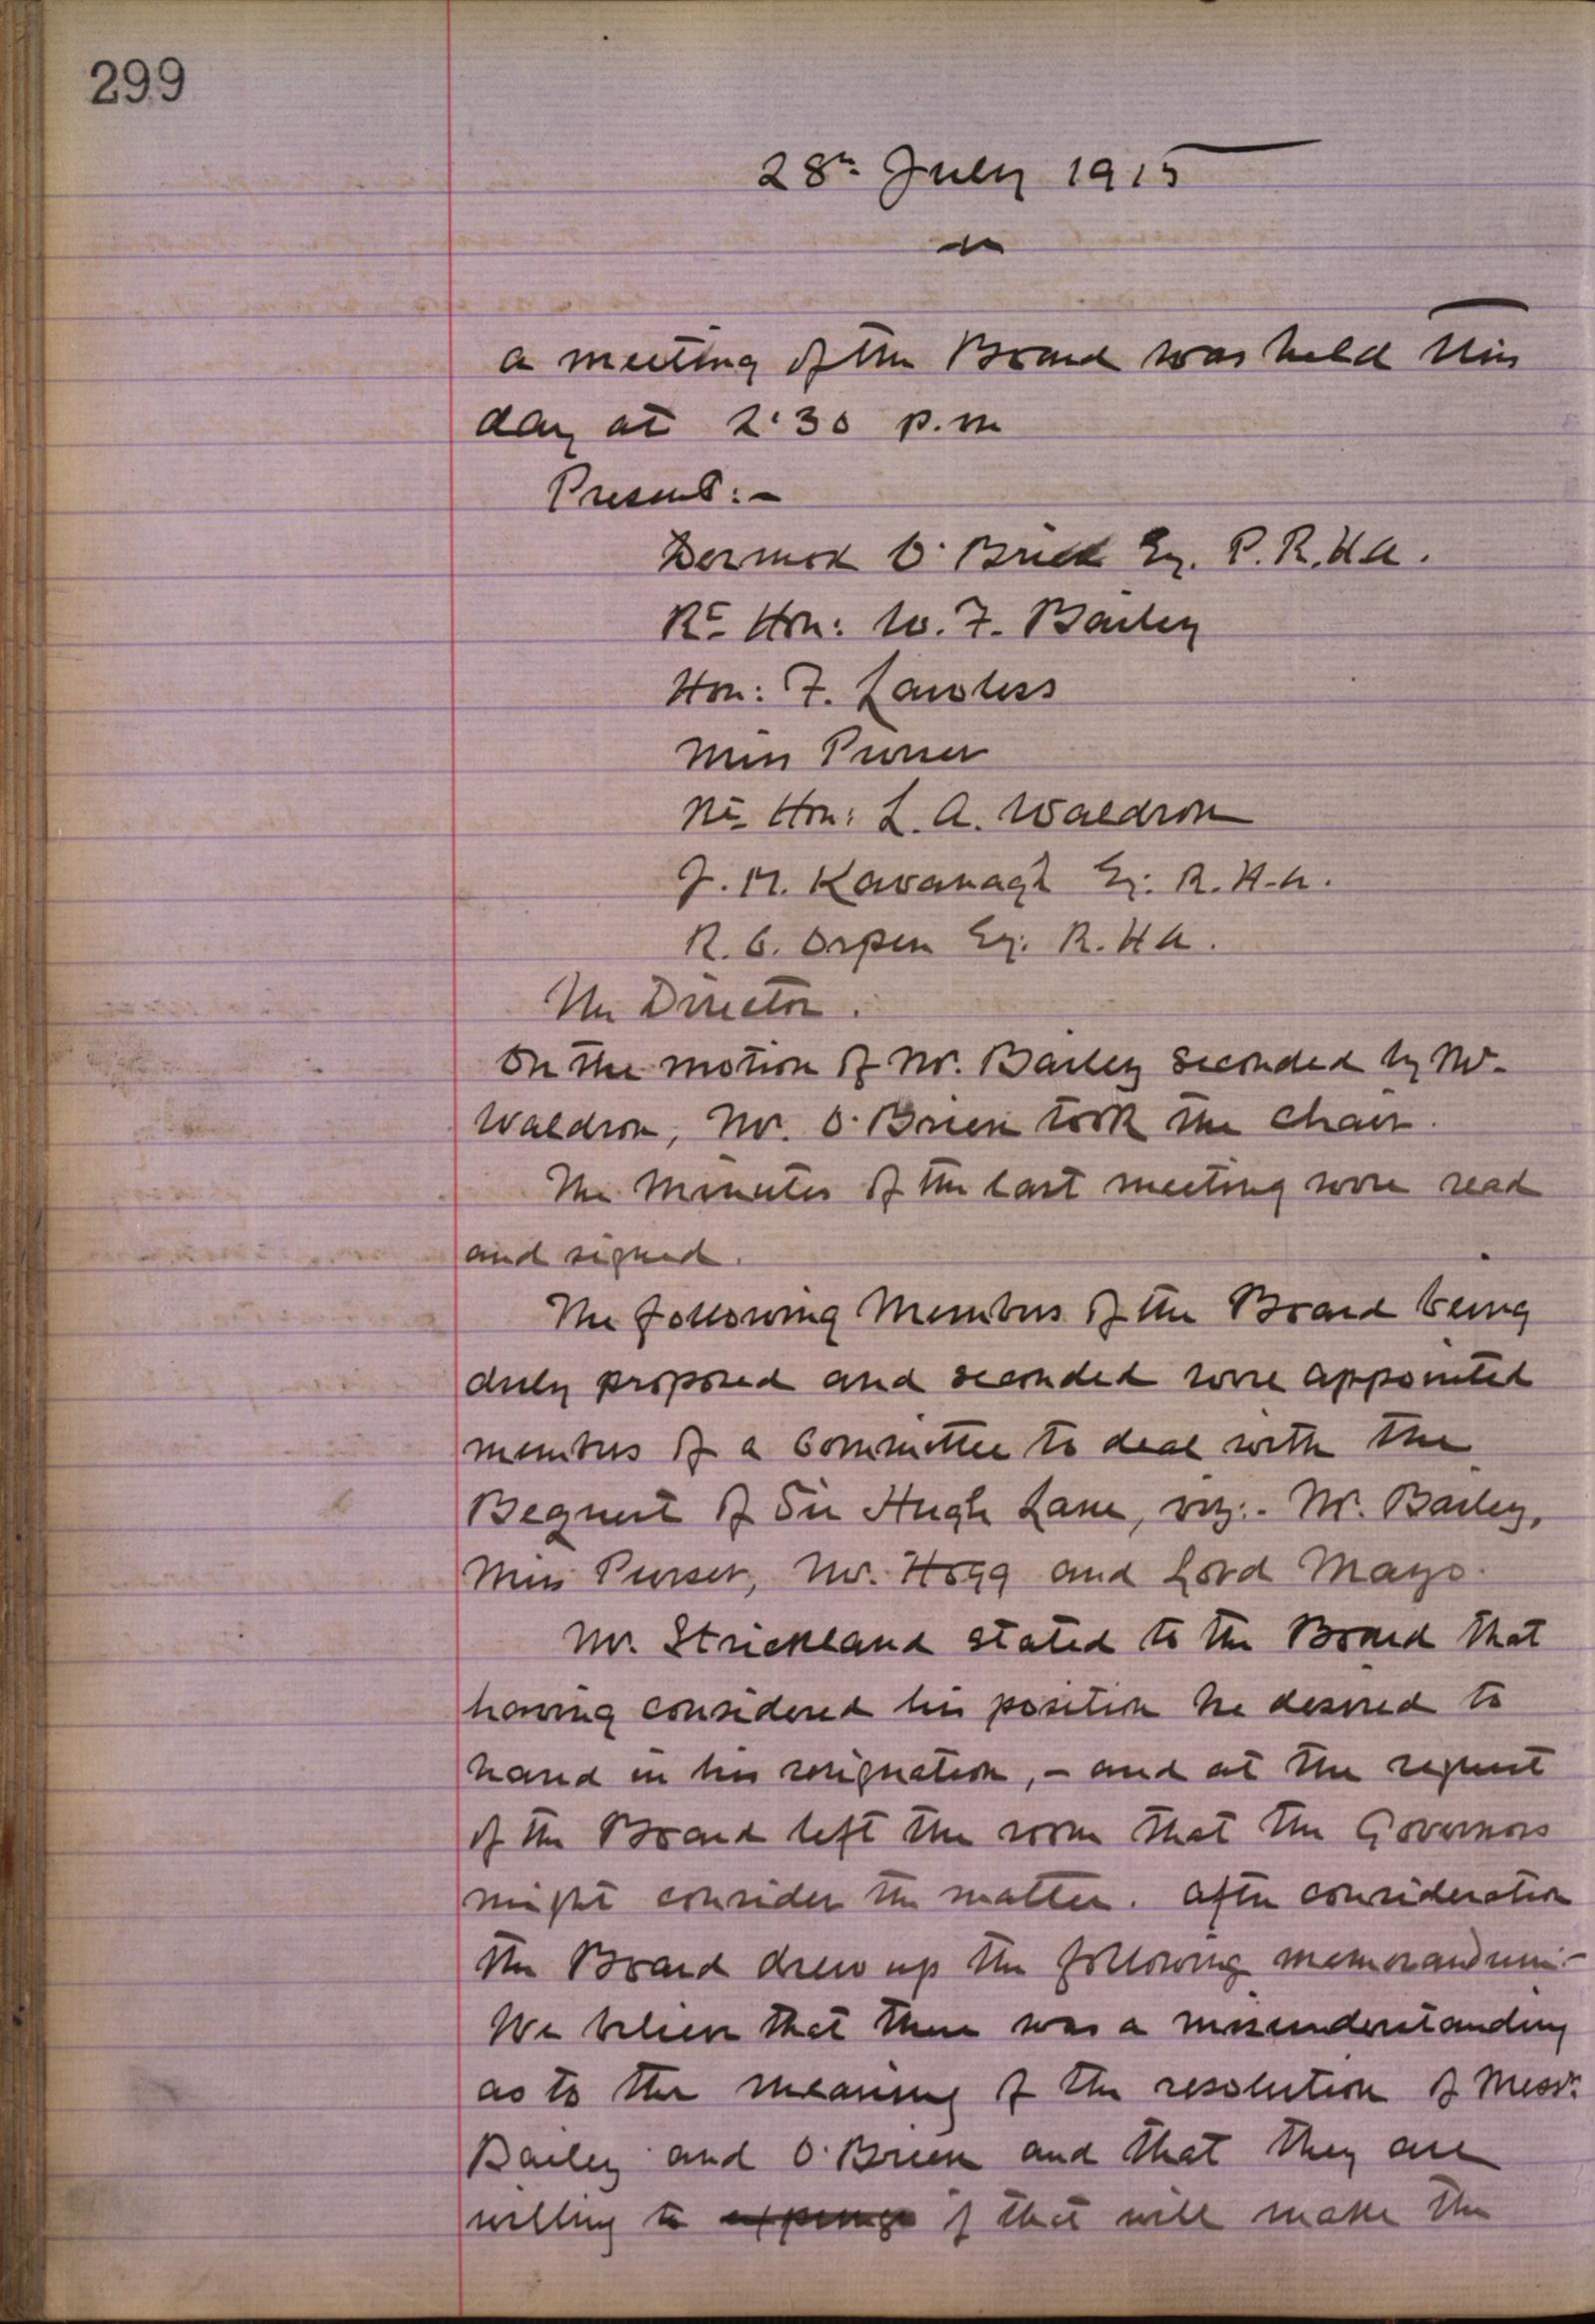 299
28th July 1915
A meeting of the Board was held this
day at 2.30 p.m
Present:-
Dermod O'Brien Esq. P.R.H.A.
Rt Hon: W. F. Bailey
Hon: F. Lawless
Miss Purser
Rt Hon: L. A. Waldron
J. M. Kavanagh Esq. R.H.A.
R. C. Orpen Esq. R.H.A.
The Director.
On the motion of Mr. Bailey seconded by Mr.
Waldron, Mr. O'Brien took the chair.
The Minutes of the last meeting were read
and signed.
The following Members of the Board being
duly proposed and seconded were appointed
members of a Committee to deal with the
Bequest of Sir Hugh Lane, viz:- Mr. Bailey,
Miss Purser, Mr. Hogg and Lord Mayo.
Mr. Strickland stated to the Board that
having considered his position he desired to
hand in his resignation, - and at the request
of the Board left the room that the Governors
might consider the matter. After consideration
the Board drew up the following memorandum:-
We believe that there was a misunderstanding
as to the meaning of the resolution of Messrs
Bailey and O'Brien and that they are
willing to expunge if that will make the